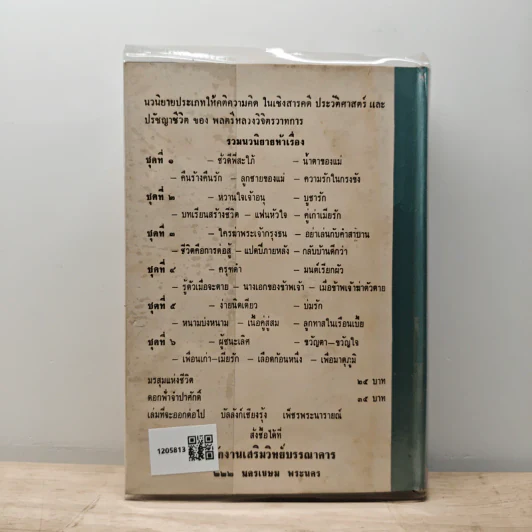 นวนิยายประเภทให้คติความคิด ในเชิงสารคดี ประวัติศาสตร์ และ
ปรัชญาชีวิต ของ พลตรีหลวงวิจิตรวาทการ
รวมนวนิยายห้าเรื่อง
ชุดที่ ๑ – ชัวดีพี่สะใภ้ – น้ำตาของแม่
– คืนร้างคืนรัก – ลูกชายของแม่ – ความรักในกรงขัง
ชุดที่ ๒ – หวานใจเจ้าอนุ – บูชารัก
– บทเรียนสร้างชีวิต – แฟนหัวใจ – คู่เก่าเมียรัก
ชุดที่ ๓ – ใครฆ่าพระเจ้ากรุงธน – อย่าเล่นกับคำสาบาน
– ชีวิตคือการต่อสู้ – แปดปีภายหลัง – กลับบ้านดีกว่า
ชุดที่ ๔ – ครุฑดำ – มนต์เรียกผัว
– รู้ตัวเมื่อจะตาย – นางเอกของข้าพเจ้า – เมื่อข้าพเจ้าฆ่าตัวตาย
ชุดที่ ๕ – ง่ายนิดเดียว – บ่มรัก
– หนามบ่งหนาม – เนื้อคู่สู่สม – ลูกทาสในเรือนเบี้ย
ชุดที่ ๖ – ผู้ชนะเลิศ – ขวัญตา–ขวัญใจ
– เพื่อนเก่า–เมียรัก – เลือดก้อนหนึ่ง – เพื่อมาตุภูมิ
มรสุมแห่งชีวิต ๒๕ บาท
ดอกฟ้าจำปาศักดิ์ ๓๕ บาท
เล่มที่จะออกต่อไป บัลลังก์เชียงรุ้ง เพ็ชรพระนารายณ์
สั่งซื้อได้ที่
งานเสริมวิทย์บรรณาคาร
๒๒๒ นครเขษม พระนคร
1205813